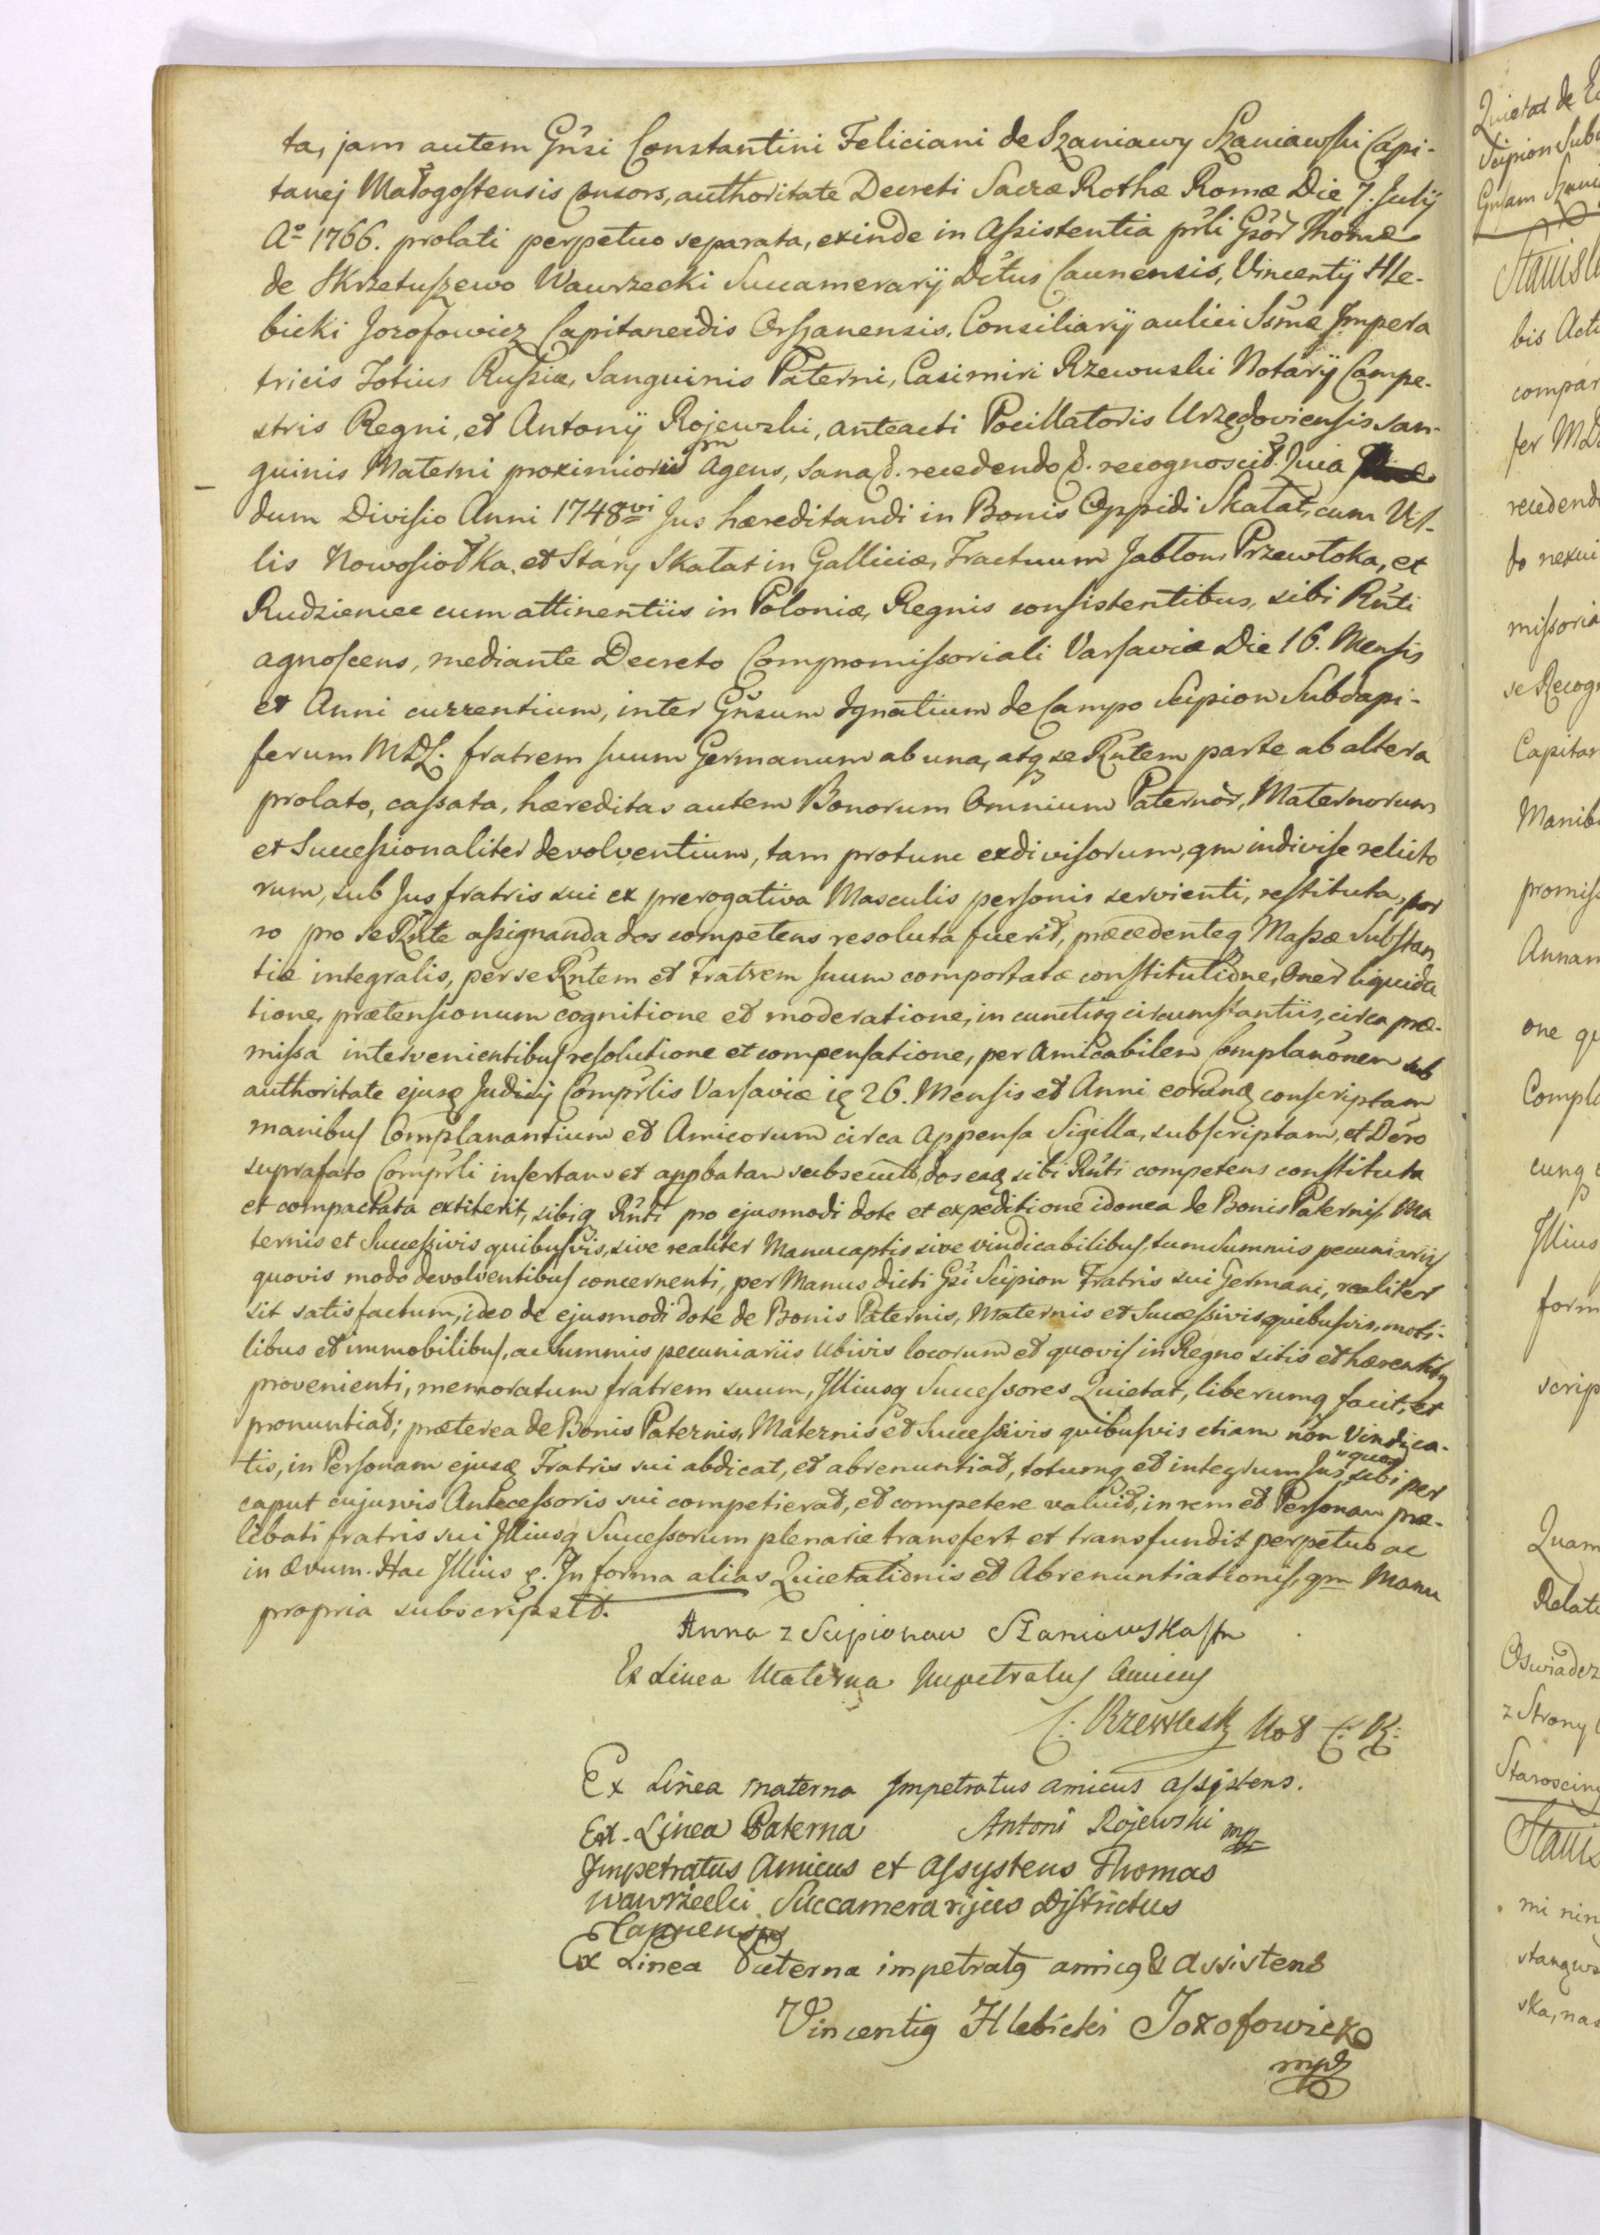 ta, jam autem Gnsi Constantini Feliciani de Szaniawy Szaniawski Capi-
tanej Małogostensis consors, authoritate Decreti Sacræ Rothæ Romæ Die 7. July
Aº 1766. prolati perpetuo separata, exinde in Assistentia prli Gsor Thomæ
de Skrzetuszewo Wawrzecki Succamerarij Dctus Caunensis, Vincentij Hle-
bicki Jozofowicz Capitaneidis Orszanensis, Consiliarij aulici Ssmæ Impera
tricis Totius Russiæ, Sanguinis Paterni, Casimiri Rzewuski Notarij Campe-
stris Regni, et Antonij Rojewski, anteacti Pocillatoris Urzędoviensis san-
guinis Materni proximiorum Agens, sana d. recedendo d. recognoscit. Quia
dum Divisio Anni 1748vi Jus hæreditandi in Bonis Oppidi Skałat, cum Vil-
lis Nowosiołka, et Stary Skałat in Galliciæ, Tractuum Jabłoń, Przewłoka, et
Rudzieniec cum attinentiis in Poloniæ, Regnis consistentibus, sibi Rnti
agnoscens, mediante Decreto Compromissoriali Varsaviæ Die 16. Mensis
et Anni currentium, inter Gnsum Ignatium de Campo Scipion Subdapi-
ferum MDL. fratrem suum Germanum ab una, atq se Rntem parte ab altera
prolato, cassata, hæreditas autem Bonorum Omnium Paternor, Maternorum
et Successionaliter devolventium, tam protunc exdivisorum, qm indivise relicto
rum, sub Jus fratris sui ex prerogativa Masculis personis servienti, restituta, por
ro pro se Rnte assignanda dos competens resoluta fuerit, præcedenteq Massæ Substan
tiæ integralis, per se Rntem et Fratrem suum comportatæ constitutione, Oner liquida
tione, prætensionum cognitione et moderatione, in cunctisq circumstantiis, circa præ-
missa intervenientibus resolutione et compensatione, per Amicabilem Complanonem sub
authoritate ejusq Judicij Comprlis Varsaviæ 26. Mensis et Anni conscriptam
manibus Complanantium et Amicorum circa Appensa Sigilla, subscriptam, et Dcro
suprafato Comprli insertam et appbatam subsecuta, dos eaq sibi Rnti competens constituta
et compactata extiterit, sibiq Rnti pro ejusmodi dote et expeditione idonea de Bonis Paternis, Ma
ternis et Successivis quibusvis, sive realiter Manucaptis sive vindicabilibus, tum Summis pecuniariis
quovis modo devolventibus concernenti, per Manus dicti Gsi Scipion Fratris sui Germani, realiter
sit satisfactum, ideo de ejusmodi dote de Bonis Paternis, Maternis et Successivis quibusvis, mobi-
libus et immobilibus, ac Summis pecuniariis ubivis locorum et quovis in Regno sitis et hærentibq
provenienti, memoratum fratrem suum, Illiusq Successores Quietat, liberumq facit, et
pronuntiat; præterea de Bonis Paternis, Maternis et Successivis quibusvis etiam non Vindica-
tis, in Personam ejusq Fratris sui abdicat, et abrenuntiat, totumq et integrum Jus, quod sibi per
caput cujusvis Antecessoris sui competierat, et competere valuit, in rem et Personam præ-
libati fratris sui Illiusq Successorum plenarie transfert et transfundit perpetuo ac
in ævum. Hac Illius q. In forma alias Quietationis et Abrenuntiationis, qm Manu
propria subscripsit.
Anna z Scipionow Szaniawska
Ex Linea Materna Impetratus Amicus
C: Rzewuski Not C: K:
Ex Linea materna Impetratus amicus assystens.
Antoni Rojewski mp
Ex Linea Paterna
Impetratus Amicus et Assystens Thomas
Wawrzecki Succamerarijus Districtus
Caunensis
Ex Linea Paterna impetratq amicq & Assistens
Vincentiq Hlebicki Jozofowicz
mp
Quietat de
Scipion Sub
Gnsam Szani
Stanisł
bis Act
compar
fer MD
recedend
to nexui
missoria
se Recogn
Capitan
Manib
promiss
Annam
one q
Compla
cunq
Illius
form
scrip
Quam
Relat
Oswiadcz
z Strony
Starosciny
Stanis
mi nin
stangws
ska, nas